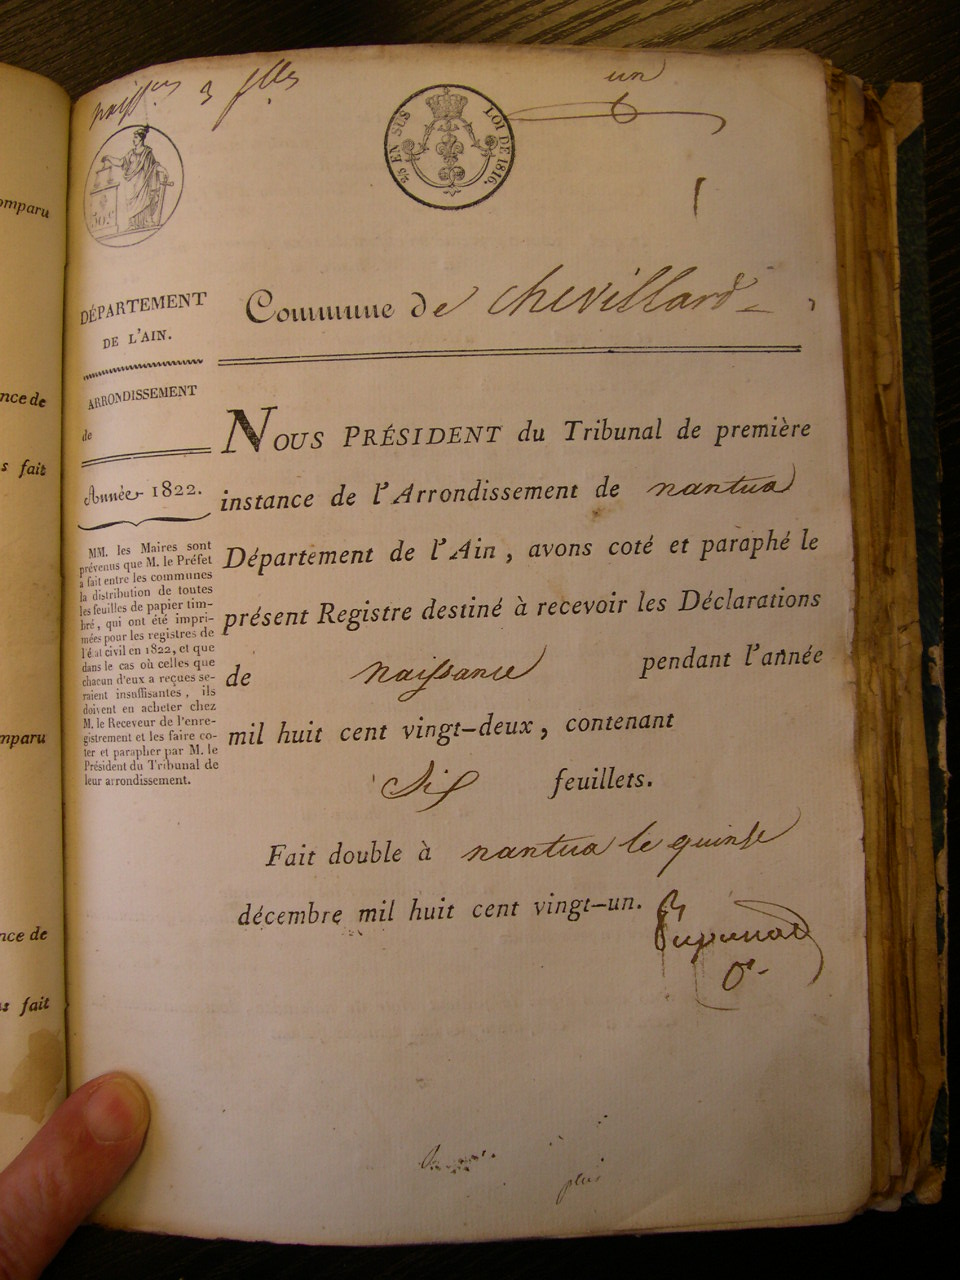 3
un
6
25 EN SUS
LOI DE 1816.
50 c.
1
DÉPARTEMENT
DE L'AIN.
ARRONDISSEMENT
de
Année 1822.
MM. les Maires sont
prévenus que M. le Préfet
a fait entre les communes
la distribution de toutes
les feuilles de papier tim-
bré, qui ont été impri-
mées pour les registres de
l'état civil en 1822, et que
dans le cas où celles que
chacun d'eux a reçues se-
raient insuffisantes, ils
doivent en acheter chez
M. le Receveur de l'enre-
gistrement et les faire co-
ter et parapher par M. le
Président du Tribunal de
leur arrondissement.
Commune de chevillard
NOUS PRÉSIDENT du Tribunal de première
instance de l'Arrondissement de nantua
Département de l'Ain, avons coté et paraphé le
présent Registre destiné à recevoir les Déclarations
de naissance pendant l'année
mil huit cent vingt-deux, contenant
Six feuillets.
Fait double à nantua le quinse
décembre mil huit cent vingt-un.
omparu
nce de
s fait
mparu
nce de
s fait